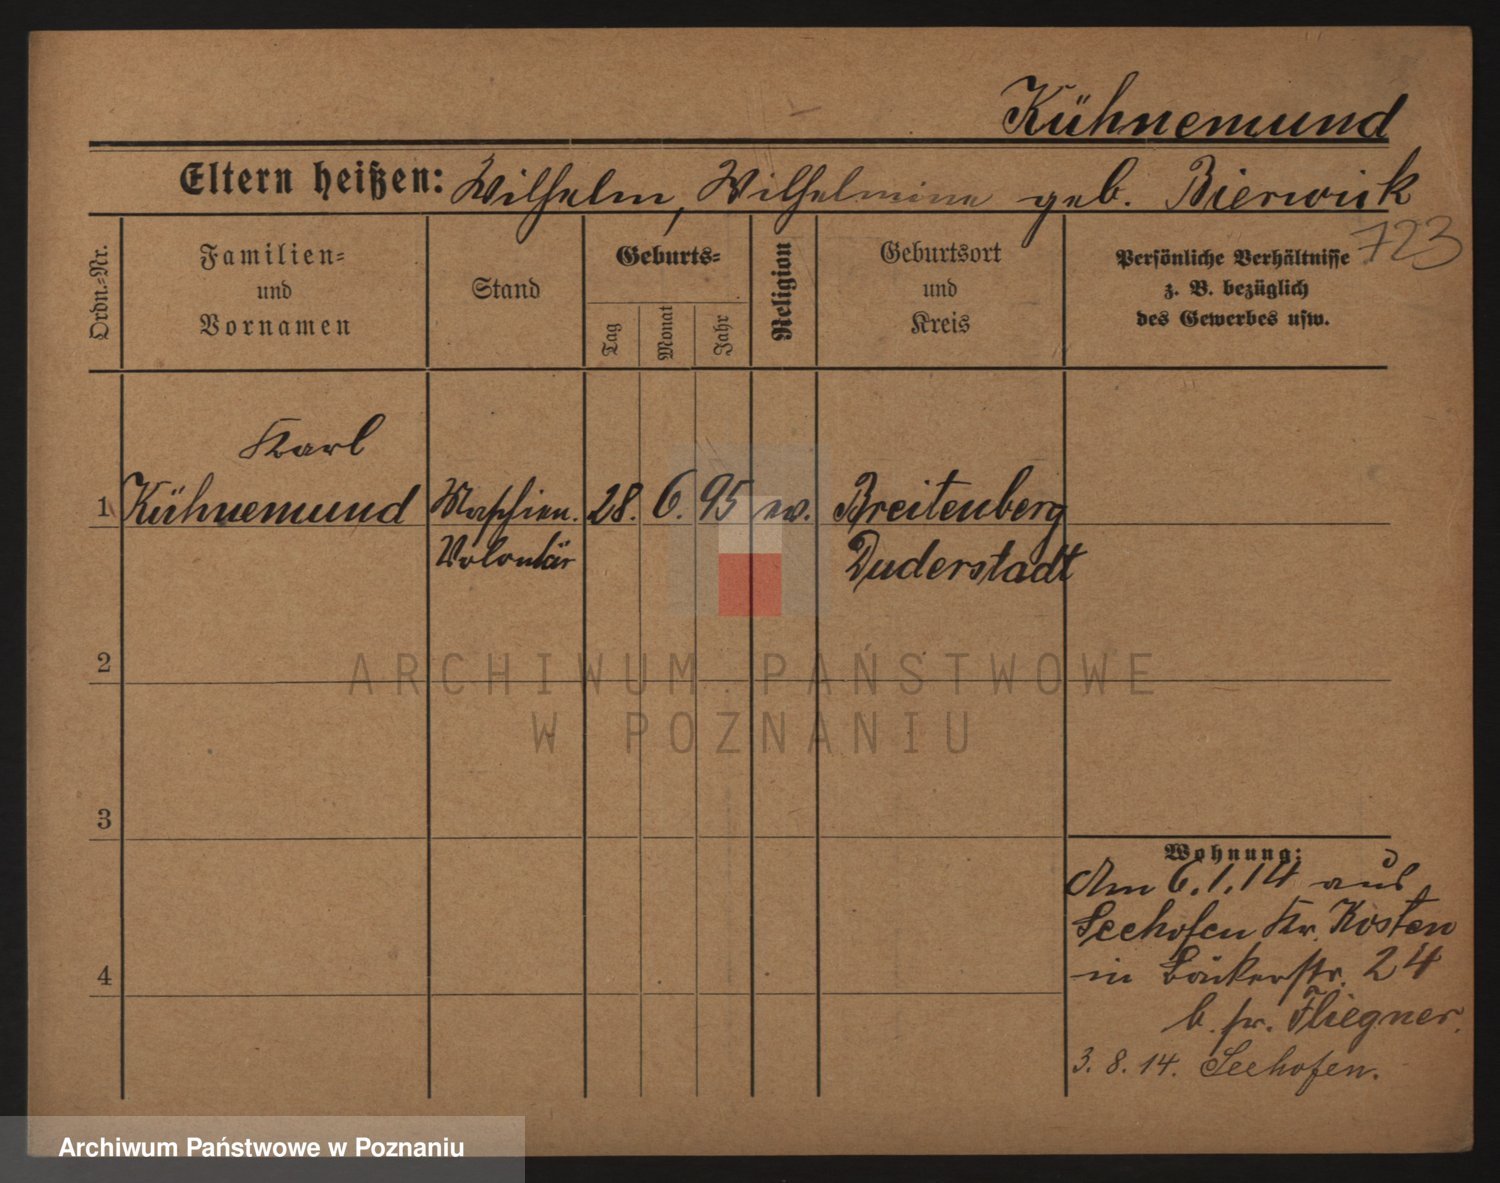 Kühnemund
Eltern heißen: Wilhelm, Wilhelmine geb. Bierwirk
723
Ordn.-Nr.
Familien-
und
Vornamen
Stand
Geburts-
Tag
Monat
Jahr
Religion
Geburtsort
und
Kreis
Persönliche Verhältnisse
z. B. bezüglich
des Gewerbes usw.
Karl
1 Kühnemund Maschien. 28. 6. 95 ev. Breitenberg
Volontär Duderstadt
2
3
4
Wohnung:
Am 6.1.14 aus
Seehofen Kr. Kosten
in Bäckerstr. 24
b. fr. Fliegner.
3. 8. 14. Seehofen.
ARCHIWUM PAŃSTWOWE
W POZNANIU
Archiwum Państwowe w Poznaniu